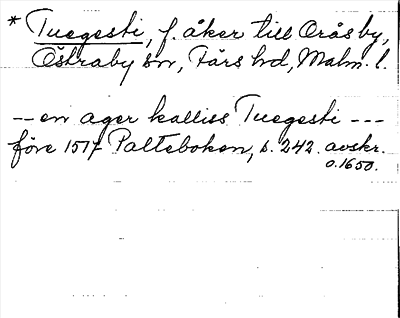 * Tuegesti, f. åker till Oråsby,
Östraby sn, Färs hd, Malm. l.
-- en ager kalliss Tuegesti ---
före 1517 Palteboken, s. 242. avskr.
o. 1650.